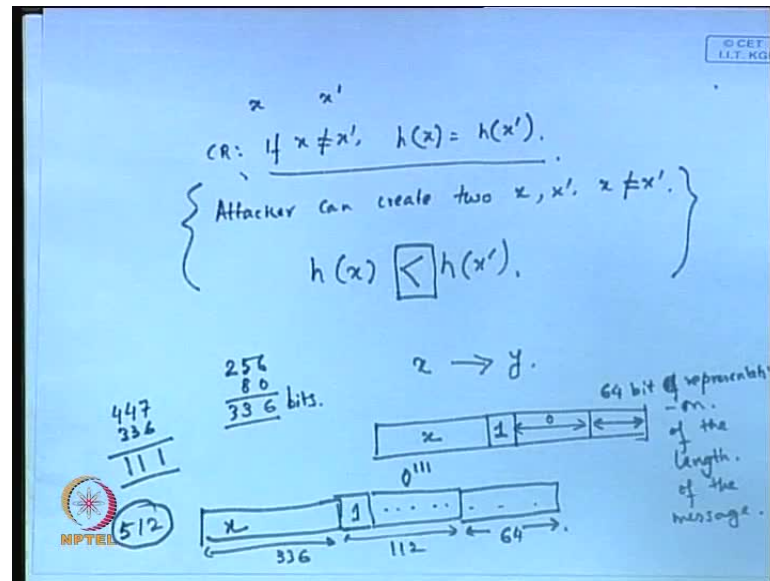 © CET
I.I.T. KGP
x x'
CR: If x ≠ x', h(x) = h(x').
Attacker can create two x, x'. x ≠ x'.
h(x) < h(x').
256
80
336 bits.
447
336
111
x → y.
64 bit representati
-on.
of the
length.
of the
message.
x 1 0
0¹¹¹
512
x 1 ..... ...
336 112 64
NPTEL